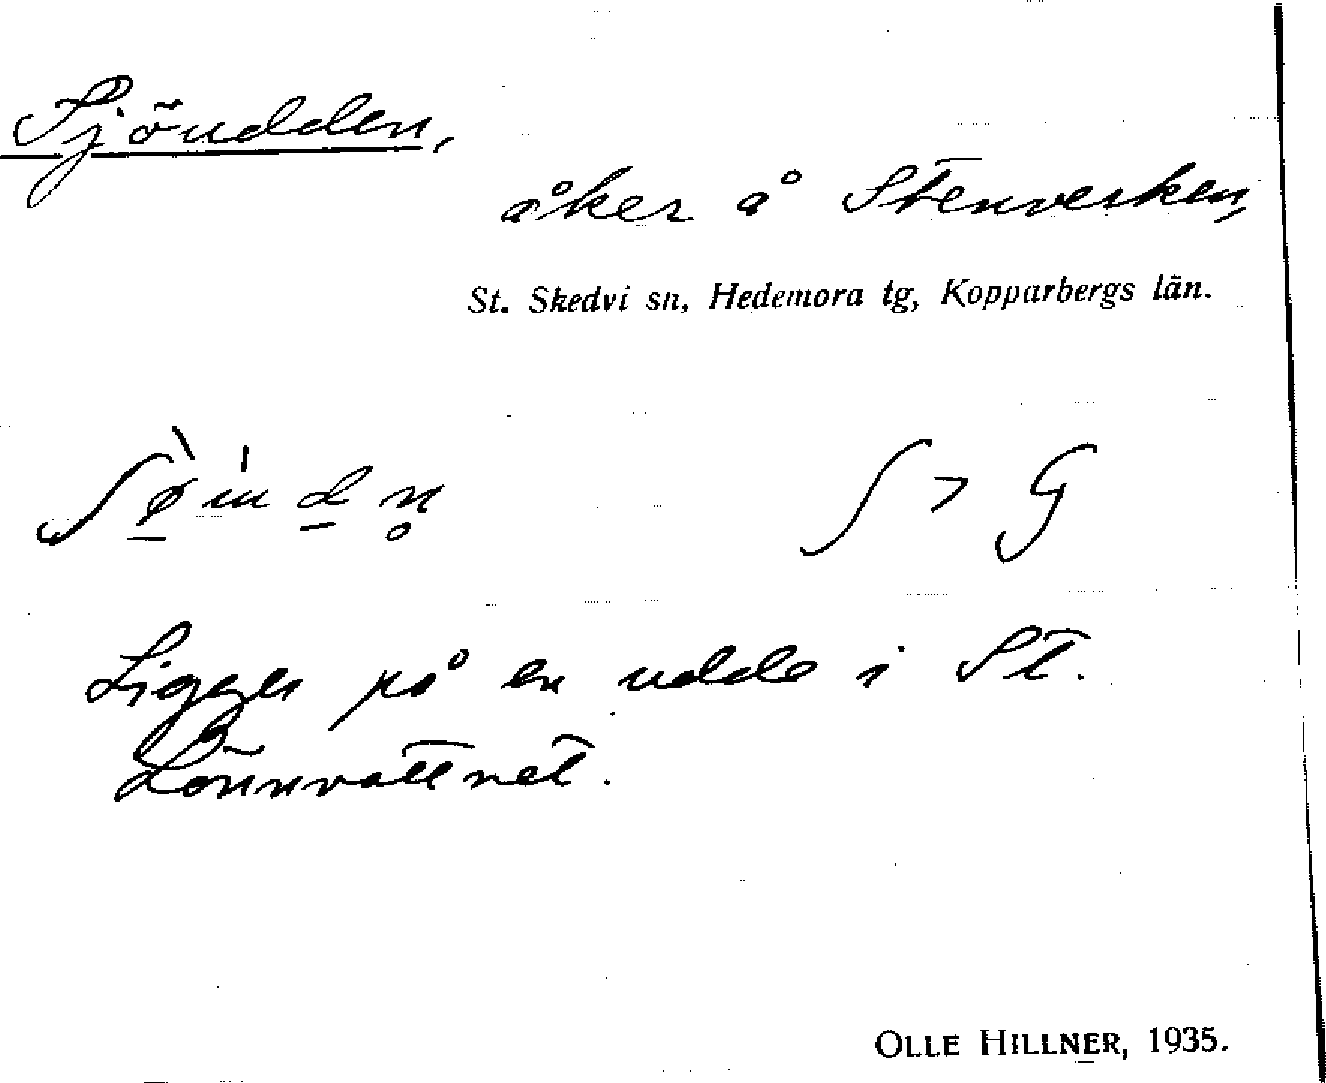 Sjöudden,
åker å Stenversken,
St. Skedvi sn, Hedemora tg, Kopparbergs län.
ʃ > G
Ligger på en udde i St.
Lönnvattnet.
OLLE HILLNER, 1935.